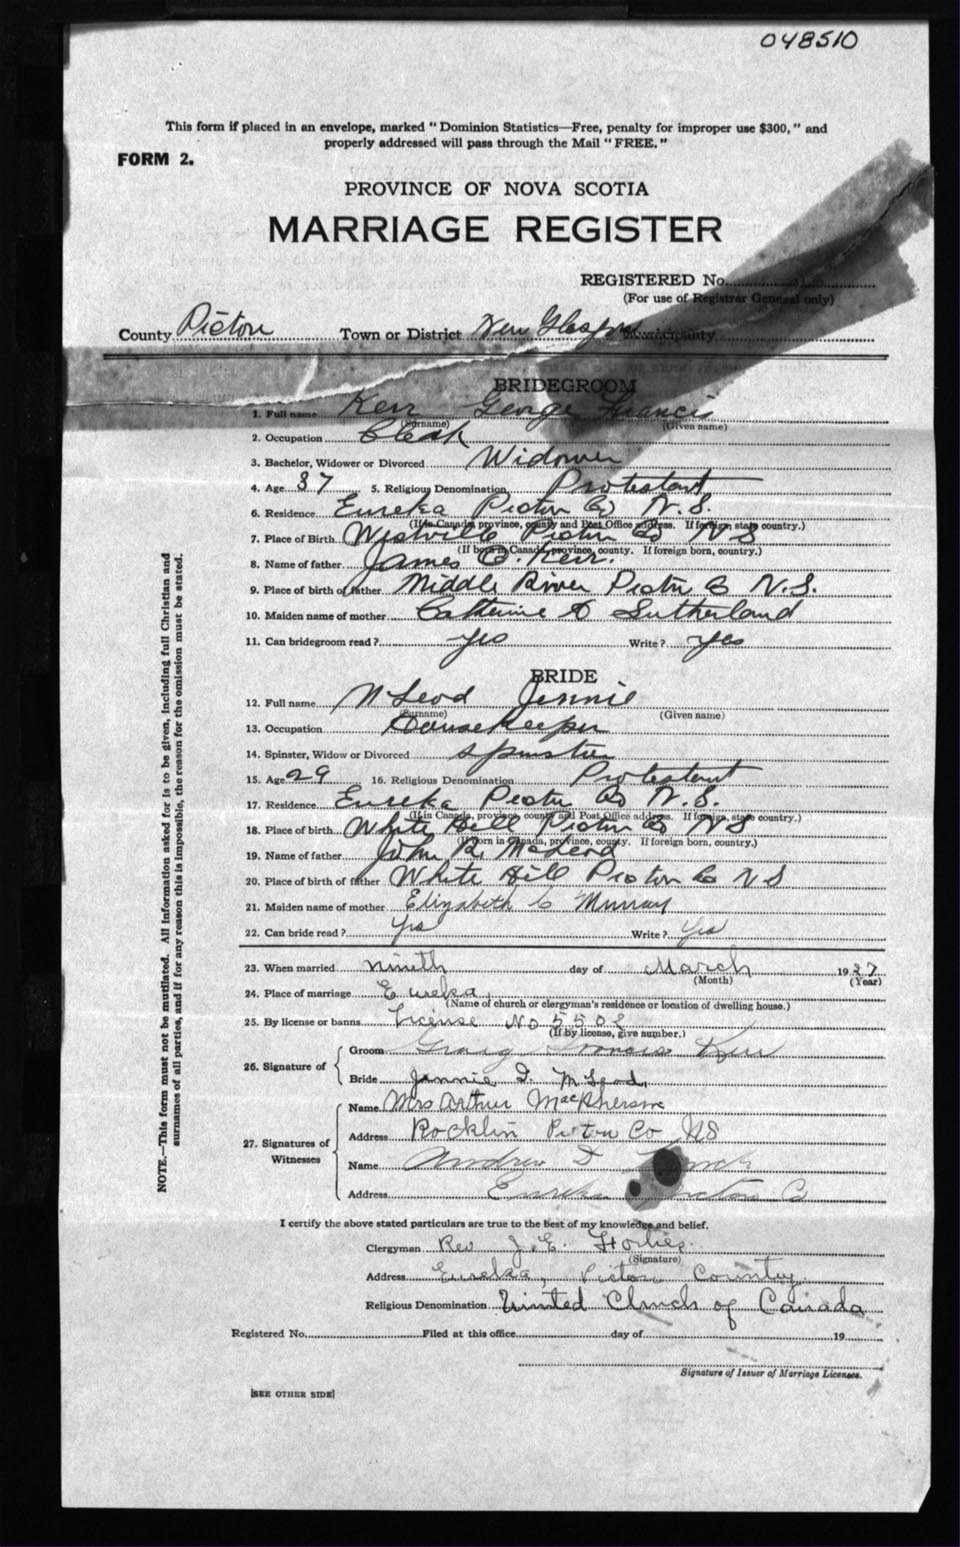 048510
This form if placed in an envelope, marked " Dominion Statistics—Free, penalty for improper use $300, " and
properly addressed will pass through the Mail " FREE. "
FORM 2.
PROVINCE OF NOVA SCOTIA
MARRIAGE REGISTER
REGISTERED No.
(For use of Registrar General only)
County Pictou Town or District New Glasgow Municipality
BRIDEGROOM
1. Full name Kerr George Francis
(Surname) (Given name)
2. Occupation Clerk
3. Bachelor, Widower or Divorced Widower
4. Age 37 5. Religious Denomination Protestant
6. Residence Eureka Pictou Co N.S.
(If in Canada, province, county and Post Office address. If foreign, state country.)
7. Place of Birth Westville Pictou Co N S
(If born in Canada, province, county. If foreign born, country.)
8. Name of father James Kerr.
9. Place of birth of father Middle River Pictou Co N.S.
10. Maiden name of mother Catherine A Sutherland
11. Can bridegroom read? yes Write? yes
BRIDE
12. Full name McLeod Jennie
(Surname) (Given name)
13. Occupation Housekeeper
14. Spinster, Widow or Divorced Spinster
15. Age 29 16. Religious Denomination Protestant
17. Residence Eureka Pictou Co N.S.
(If in Canada, province, county and Post Office address. If foreign, state country.)
18. Place of birth White Hill Pictou Co N S
(If born in Canada, province, county. If foreign born, country.)
19. Name of father John R. McLeod
20. Place of birth of father White Hill Pictou Co N S
21. Maiden name of mother Elizabeth C Murray
22. Can bride read? Yes Write? Yes
23. When married nineth day of March 1937
(Month) (Year)
24. Place of marriage Eureka,
(Name of church or clergyman's residence or location of dwelling house.)
25. By license or banns License No
(If by license, give number.)
26. Signature of
Groom Francis Kerr
Bride Jennie McLeod,
27. Signatures of Witnesses
Name Mrs Arthur MacPherson
Address Rocklin Pictou Co NS
Name Andrew
Address Eureka Pictou Co
I certify the above stated particulars are true to the best of my knowledge and belief.
Clergyman Rev J. E. Forbes
(Signature)
Address Eureka, Pictou County
Religious Denomination United Church of Canada
Registered No. Filed at this office day of 19
Signature of Issuer of Marriage Licenses.
[SEE OTHER SIDE]
NOTE.—This form must not be mutilated. All information asked for is to be given, including full Christian and
surnames of all parties, and if for any reason this is impossible, the reason for the omission must be stated.